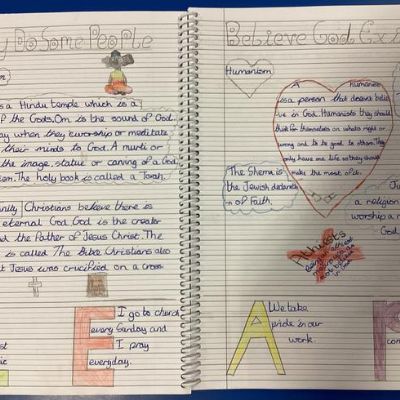 y Do Some People
s a Hindu temple which is a
f the Gods. Om is the sound of God.
ay when they worship or meditate
their minds to God. A murti or
the image, statue or carving of a God
sm. The holy book is called a Torah.
nity Christians believe there is
eternal God. God is the creater
nd the Father of Jesus Christ. The
is called The Bible Christians also
t Jesus was crucified on a cross.
E
I go to church
every Sunday and
I pray
everyday.
Believe God Exi
Humanism
A humanist
is a person that doesnt belie
-ve in God. Humanists they should
think for themselves on whats right or
wrong and to be good to others. They
only have one life so they should
make the most of it.
The Shema is
the Jewish declarati
-n of Faith.
Ju
a religion
worship a
God
Atheists
in God
A
We take
pride in our
work.
P
con